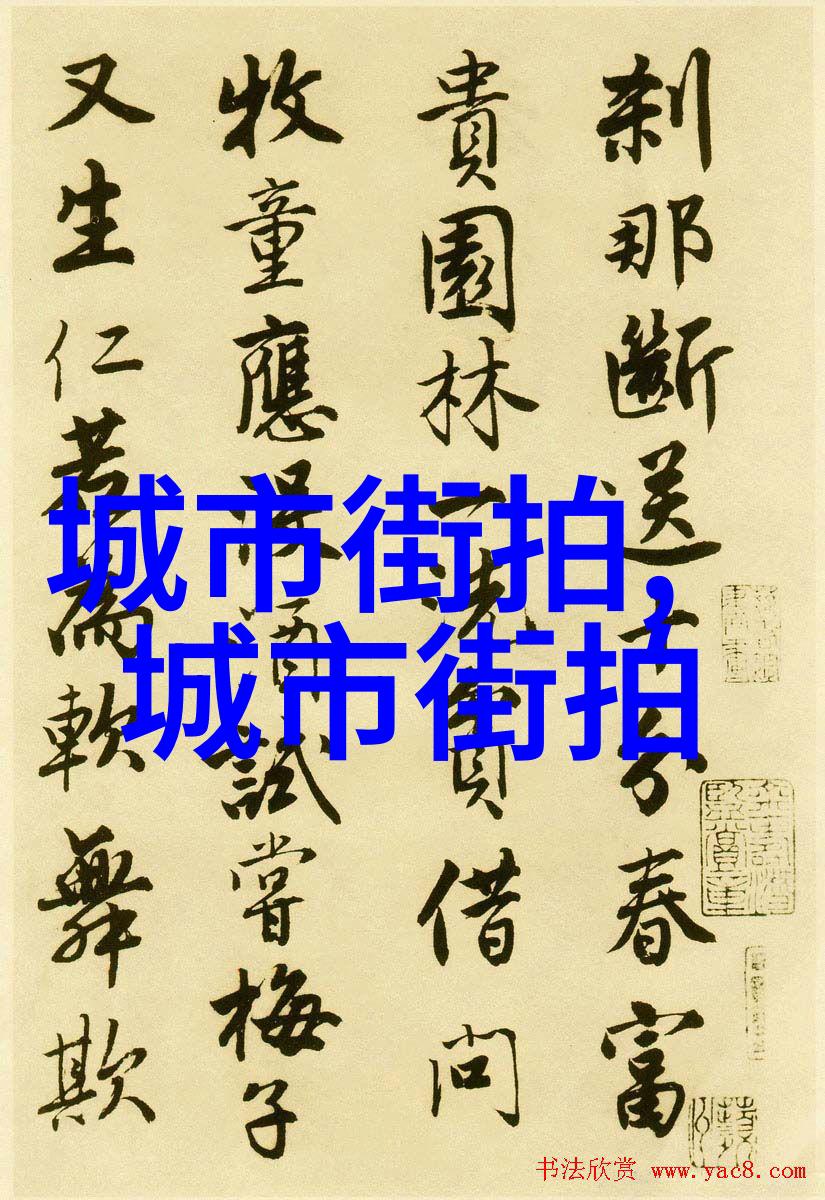 刹那斷送十分春富
貴園林一洗貧借問
牧童應沒酒試嘗梅子
又生仁若為軟舞欺
城市街拍,
城市街拍
书法欣赏 www.yac8.com